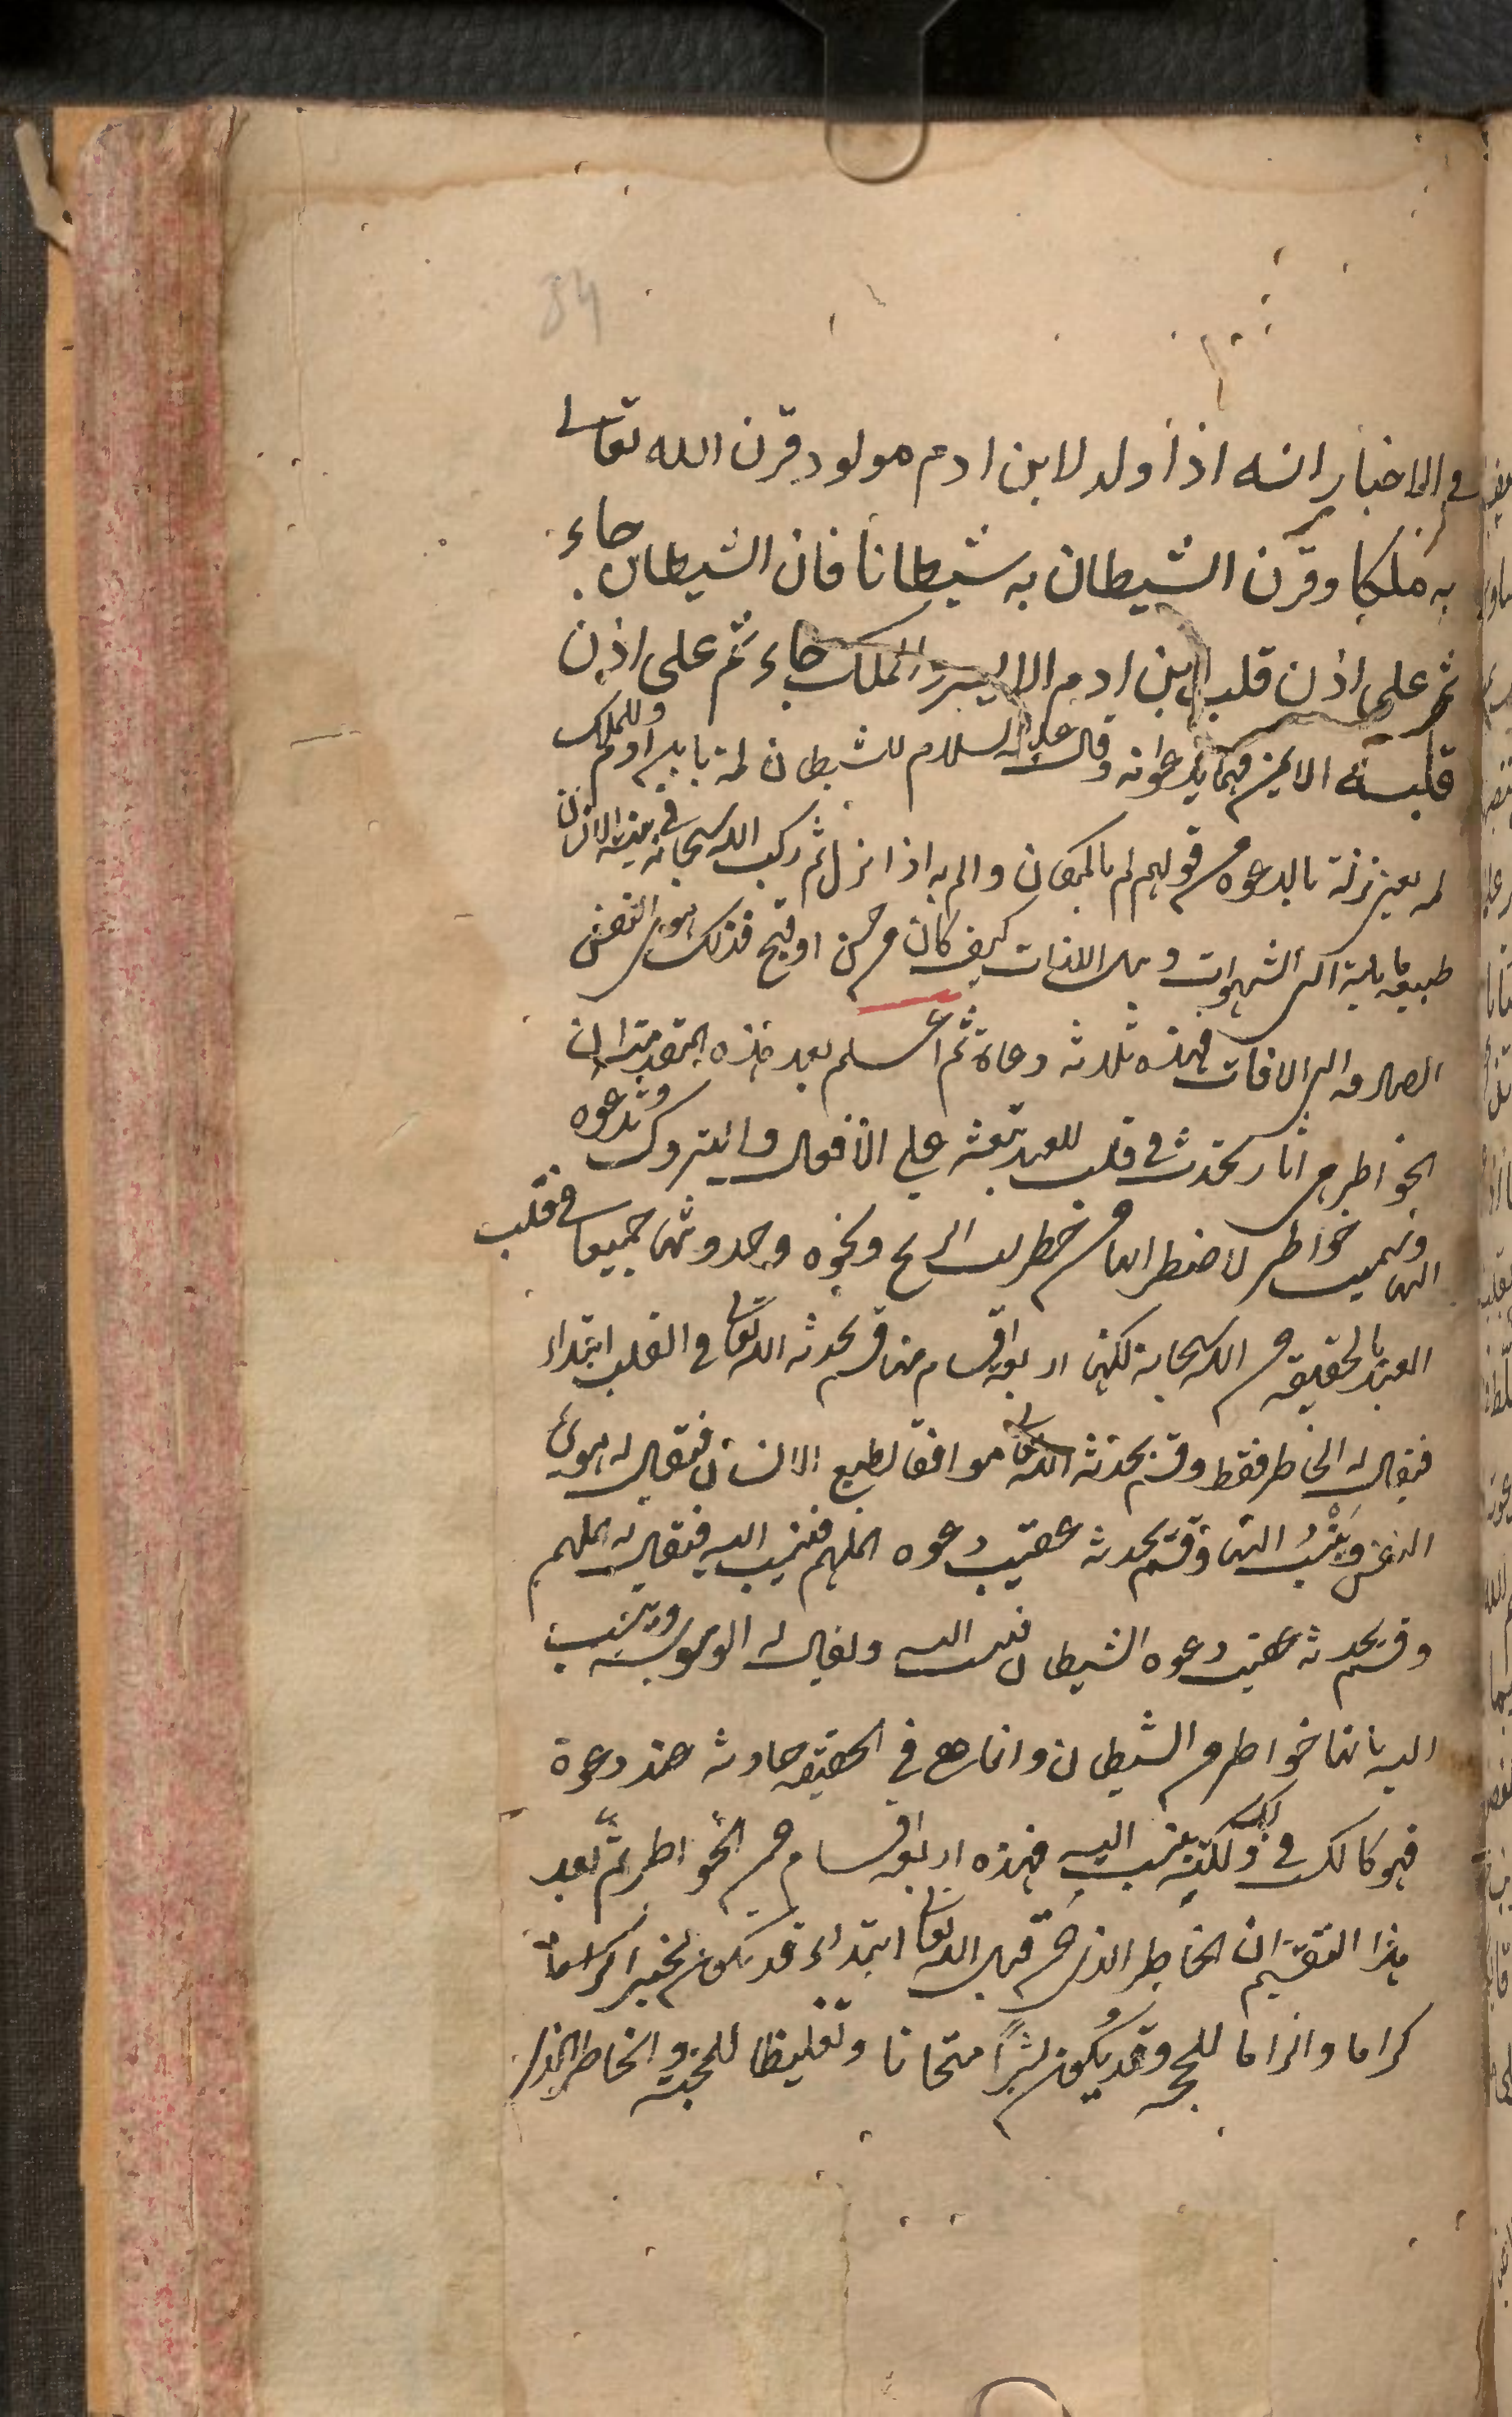 34
في الاخبار انه اذا ولد لابن ادم مولود قرن الله تعالى
به ملكا وقرن الشيطان به شيطانا فان الشيطان جاء
ثم على اذن قلب ابن ادم الا ليسر والملك جاء ثم على اذن
قلبه الايمن فهما يدعوانه وقال عليه السلام للشيطان لمة بابن ادم وللملك
لمة يعني نزلة بالدعوة من قولهم لم بالمكان والم به اذا نزل ثم ركب الله سبحانه في بنية الانسان
طبيعة مايلة الى الشهوات ونيل اللذات كيف كان من حسن او قبح فذلك هوى النفس
الصارفه الى الافات فهذه ثلثه دعاة ثم اعلم بعد هذه المقدمة ان
الخواطر هي اثار تحدث في قلب العبد تبعثه على الافعال والتروك وتدعوه
اليها وسميت خواطر لاضطرابها من خطرات الريح ونحوه وحدوثها جميعا في قلب
العبد بالحقيقه من الله سبحانه لكنها اربعه اقسام منها قسم يحدثه الله تعالى في القلب ابتداء
فيقال له الخاطر فقط وقسم يحدثه الله تعالى موافقا لطبع الانسان فيقال له هوى
النفس وينسب اليها وقسم يحدثه عقيب دعوه الملهم فينسب اليه فيقال له الملهم
وقسم يحدثه عقيب دعوه الشيطان فينسب اليه ويقال له الوسوسه وينسب
اليه بانها خواطر من الشيطان وانما هي في الحقيقه حادثه عند دعوة
فهو كالسبب في ذلك ولكنه ينسب اليه فهذه اربعه اقسام من الخواطر ثم بعد
هذا التقسيم ان الخاطر الذي من قبل الله تعالى ابتداء قد يكون بخير اكراما
كراما والزاما للحجه وقد يكون بشر امتحانا وتغليظا للمحنه والخاطر الذي